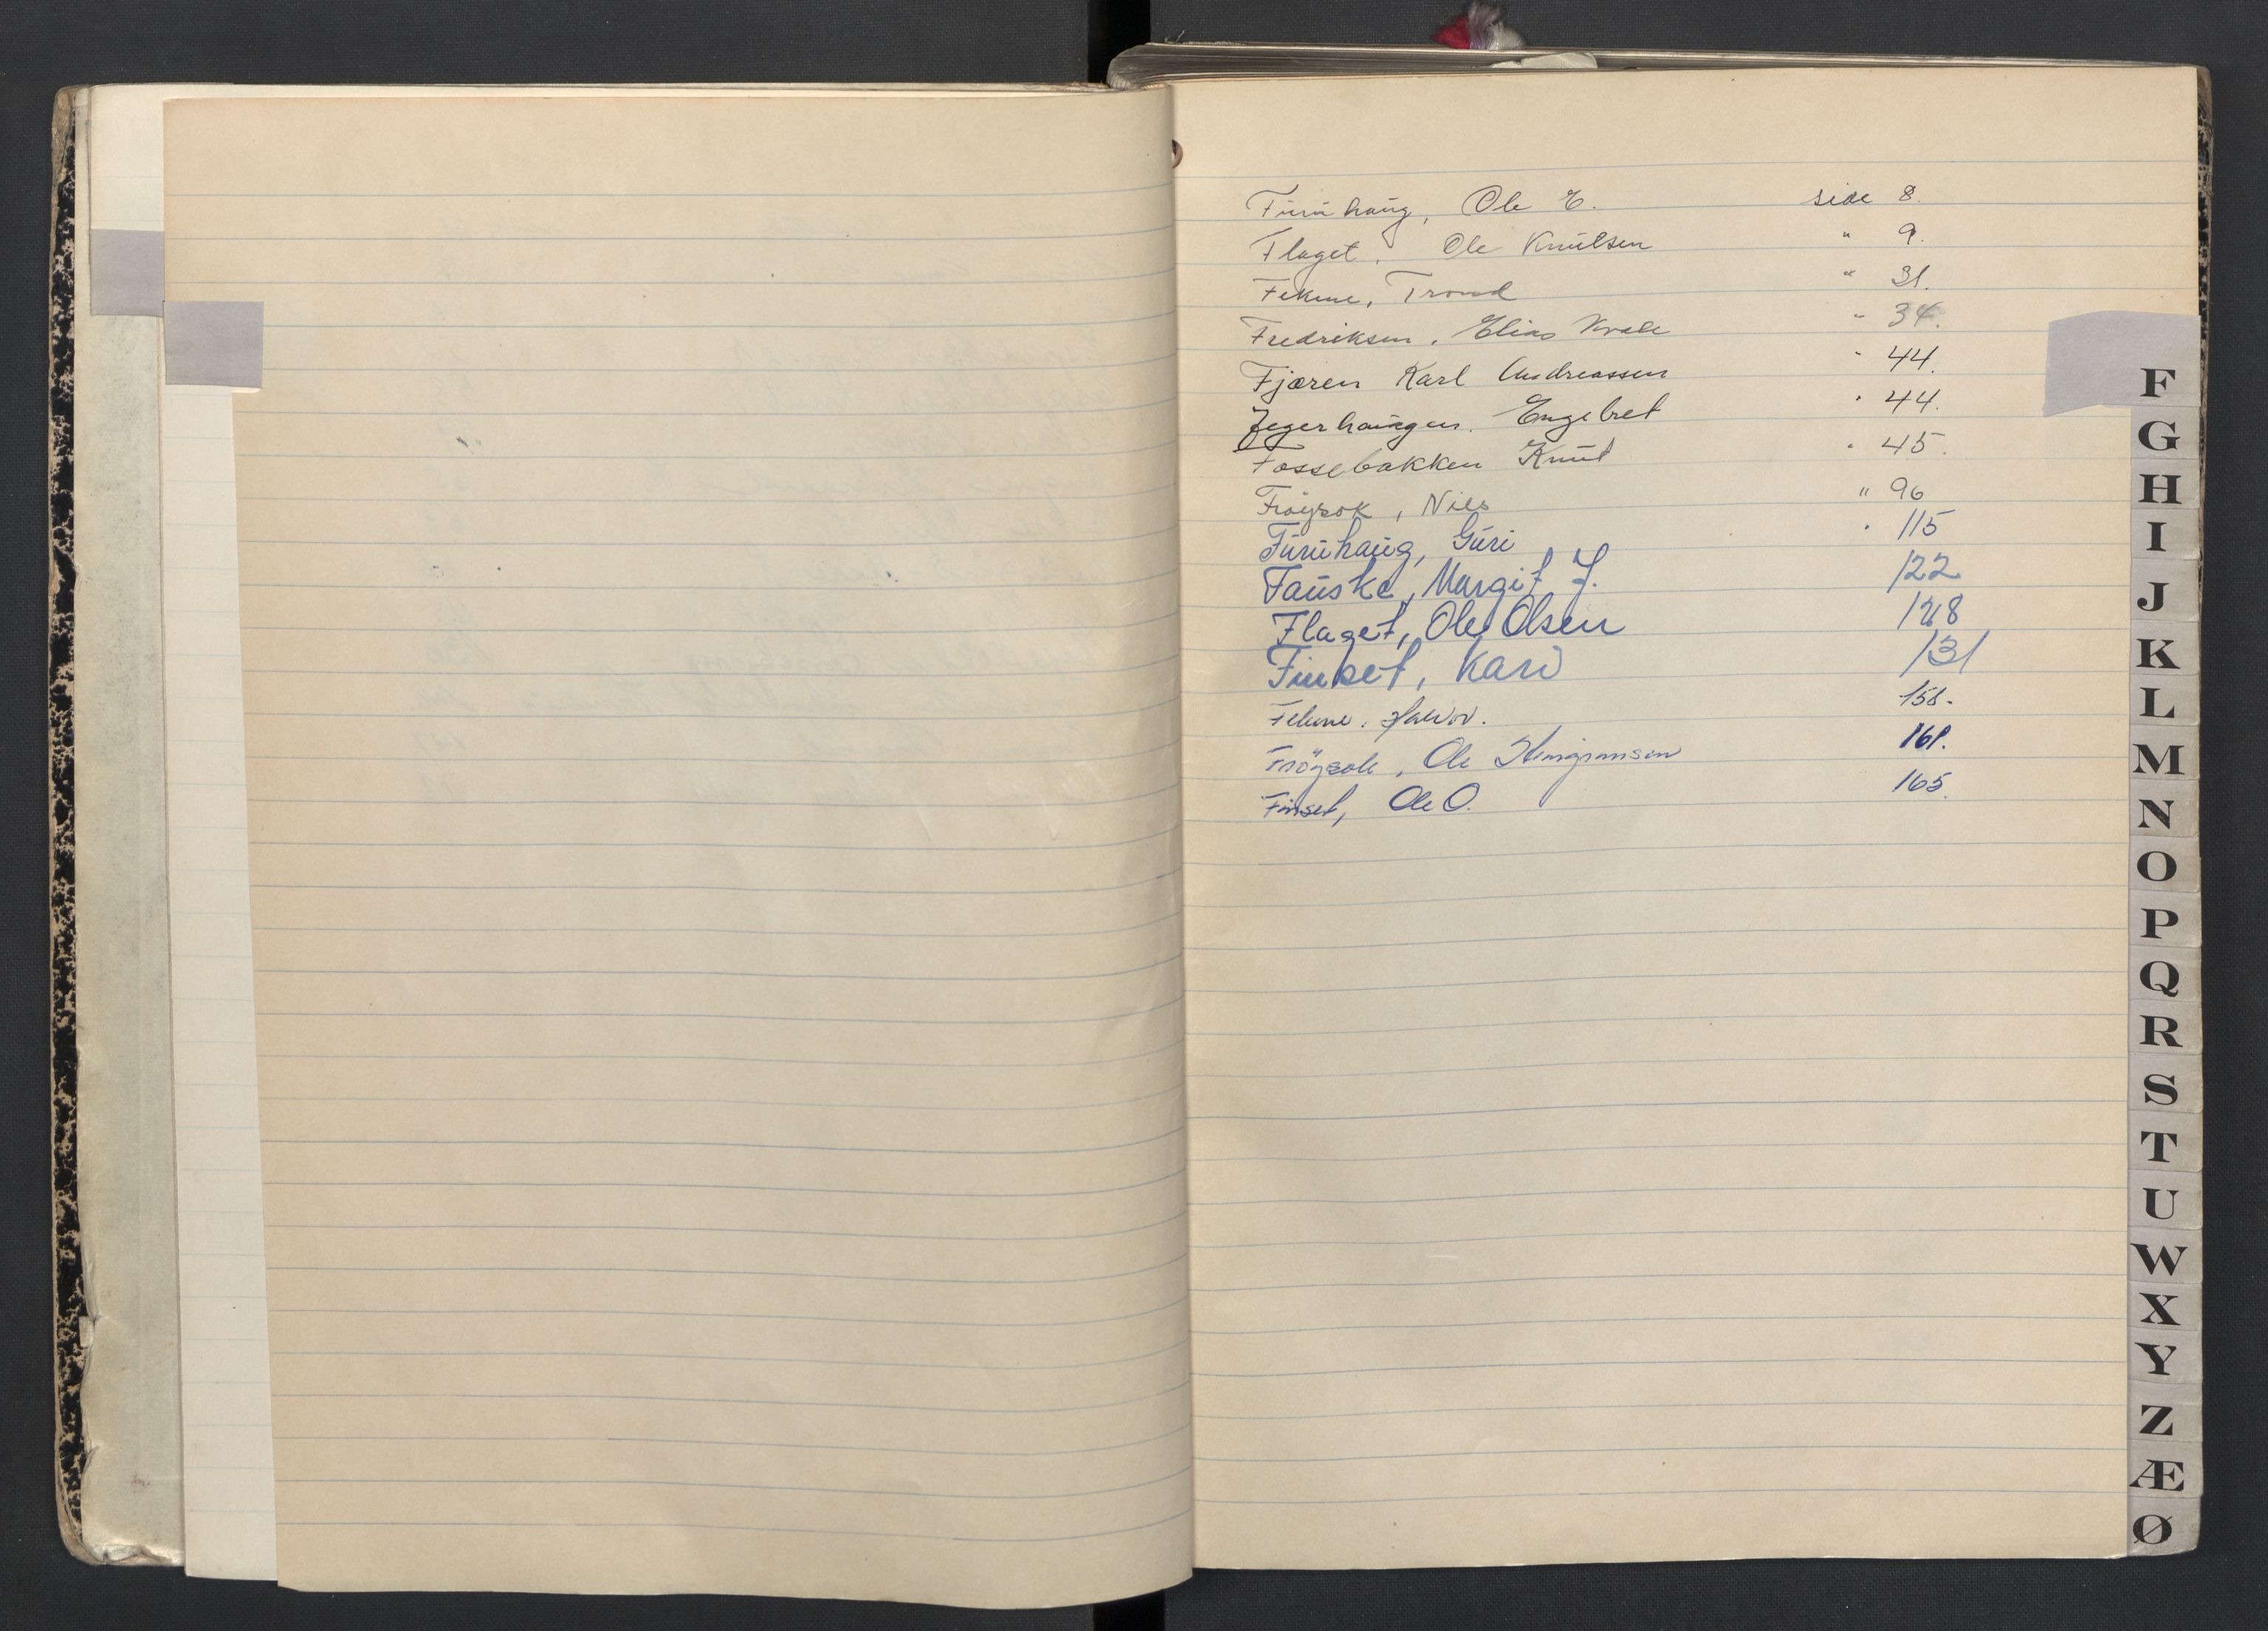 Furuhaug, Ole E. side 8.
Flaget, Ole Knutsen " 9.
Fekene, Trond " 31.
Fredriksen, Elias Kvale " 34.
Fjæren Karl Andreassen " 44.
Fegerhaugen, Engebret " 44.
Fossebakken Knut " 45.
Frøysok, Nils " 96
Furuhaug, Guri " 115
Fauske, Margit J. 122
Flaget, Ole Olsen 128
Finset, Kari 131
Halvor. 158.
Frøysok, Ole 161.
Finset, Ole O. 165.
F
G
H
I
J
K
L
M
N
O
P
Q
R
S
T
U
W
X
Y
Z
Æ
Ø